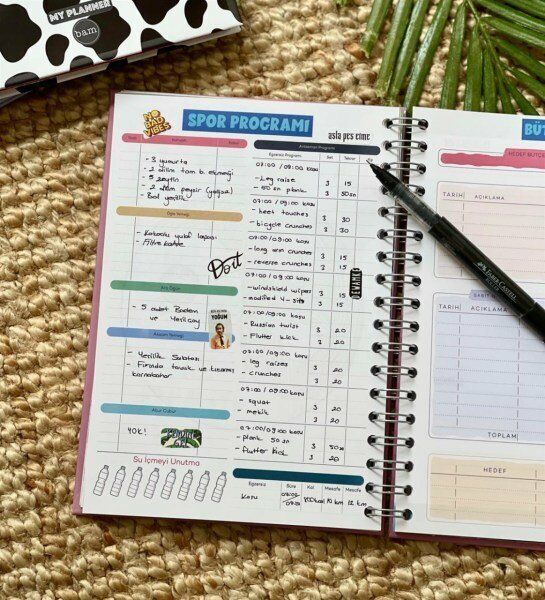 MY PLANNER
bam
NO BAD VIBES
SPOR PROGRAMI
asla pes etme
Kahvaltı
- 3 yumurta
- 2 dilim tam b. ekmeği
- 5 zeytin
- 2 dilim peynir (yağsız)
- Bol yeşillik
Öğle Yemeği
- Kakaolu yulaf lapası
- Filtre kahve
Do it
Ara Öğün
- 5 adet Badem
ve Yeşilçay
YOĞUN
Akşam Yemeği
- Yeşillik Salatası
- Fırında tavuk ve
karnabahar
Abur Cubur
YOK!
Su İçmeyi Unutma
Antrenman Programı
Egzersiz Programı Set Tekrar
07:00 / 09:00 koşu
- Leg raise 3 15
- 50 sn plank 3 50sn
07:00 / 09:00 koşu
- heel touches 3 30
- bicycle crunches 3 30
07:00 / 09:00 koşu
- long arm crunches 3 15
- reverse crunches 3 15
07:00 / 09:00 koşu
- windshield wipers 3 15
- modified 4-sit 3 15
DEVAMKE
07:00 / 09:00 koşu
- Russian twist 3 20
- Flutter kick 3 20
07:00 / 09:00 koşu
- leg raises 3 20
- crunches 3 20
07:00 / 09:00 koşu
- squat 3 20
- mekik 3 20
07:00 / 09:00 koşu
- plank 50 sn 3 50sn
- flutter kick 3 20
Egzersiz Süre Kal Mesafe Mesafe
Koşu 10 km 12 km
BÜT
HEDEF BÜTÇE
TARİH AÇIKLAMA
SABİT
TARİH AÇIKLAMA
TOPLAM
HEDEF
FABER-CASTELL